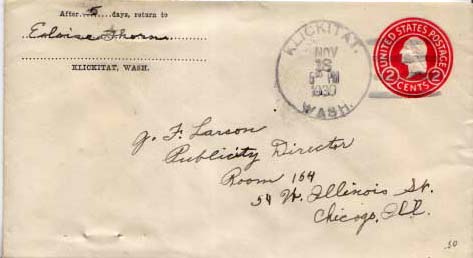 After 5 days, return to
Eloise Thorn
KLICKITAT, WASH.
KLICKITAT.
NOV
18
5 PM
1930
WASH.
UNITED STATES POSTAGE
2 2
CENTS
J. F. Larson
Publicity Director
Room 164
54 W. Illinois St.
Chicago, Ill.
.50